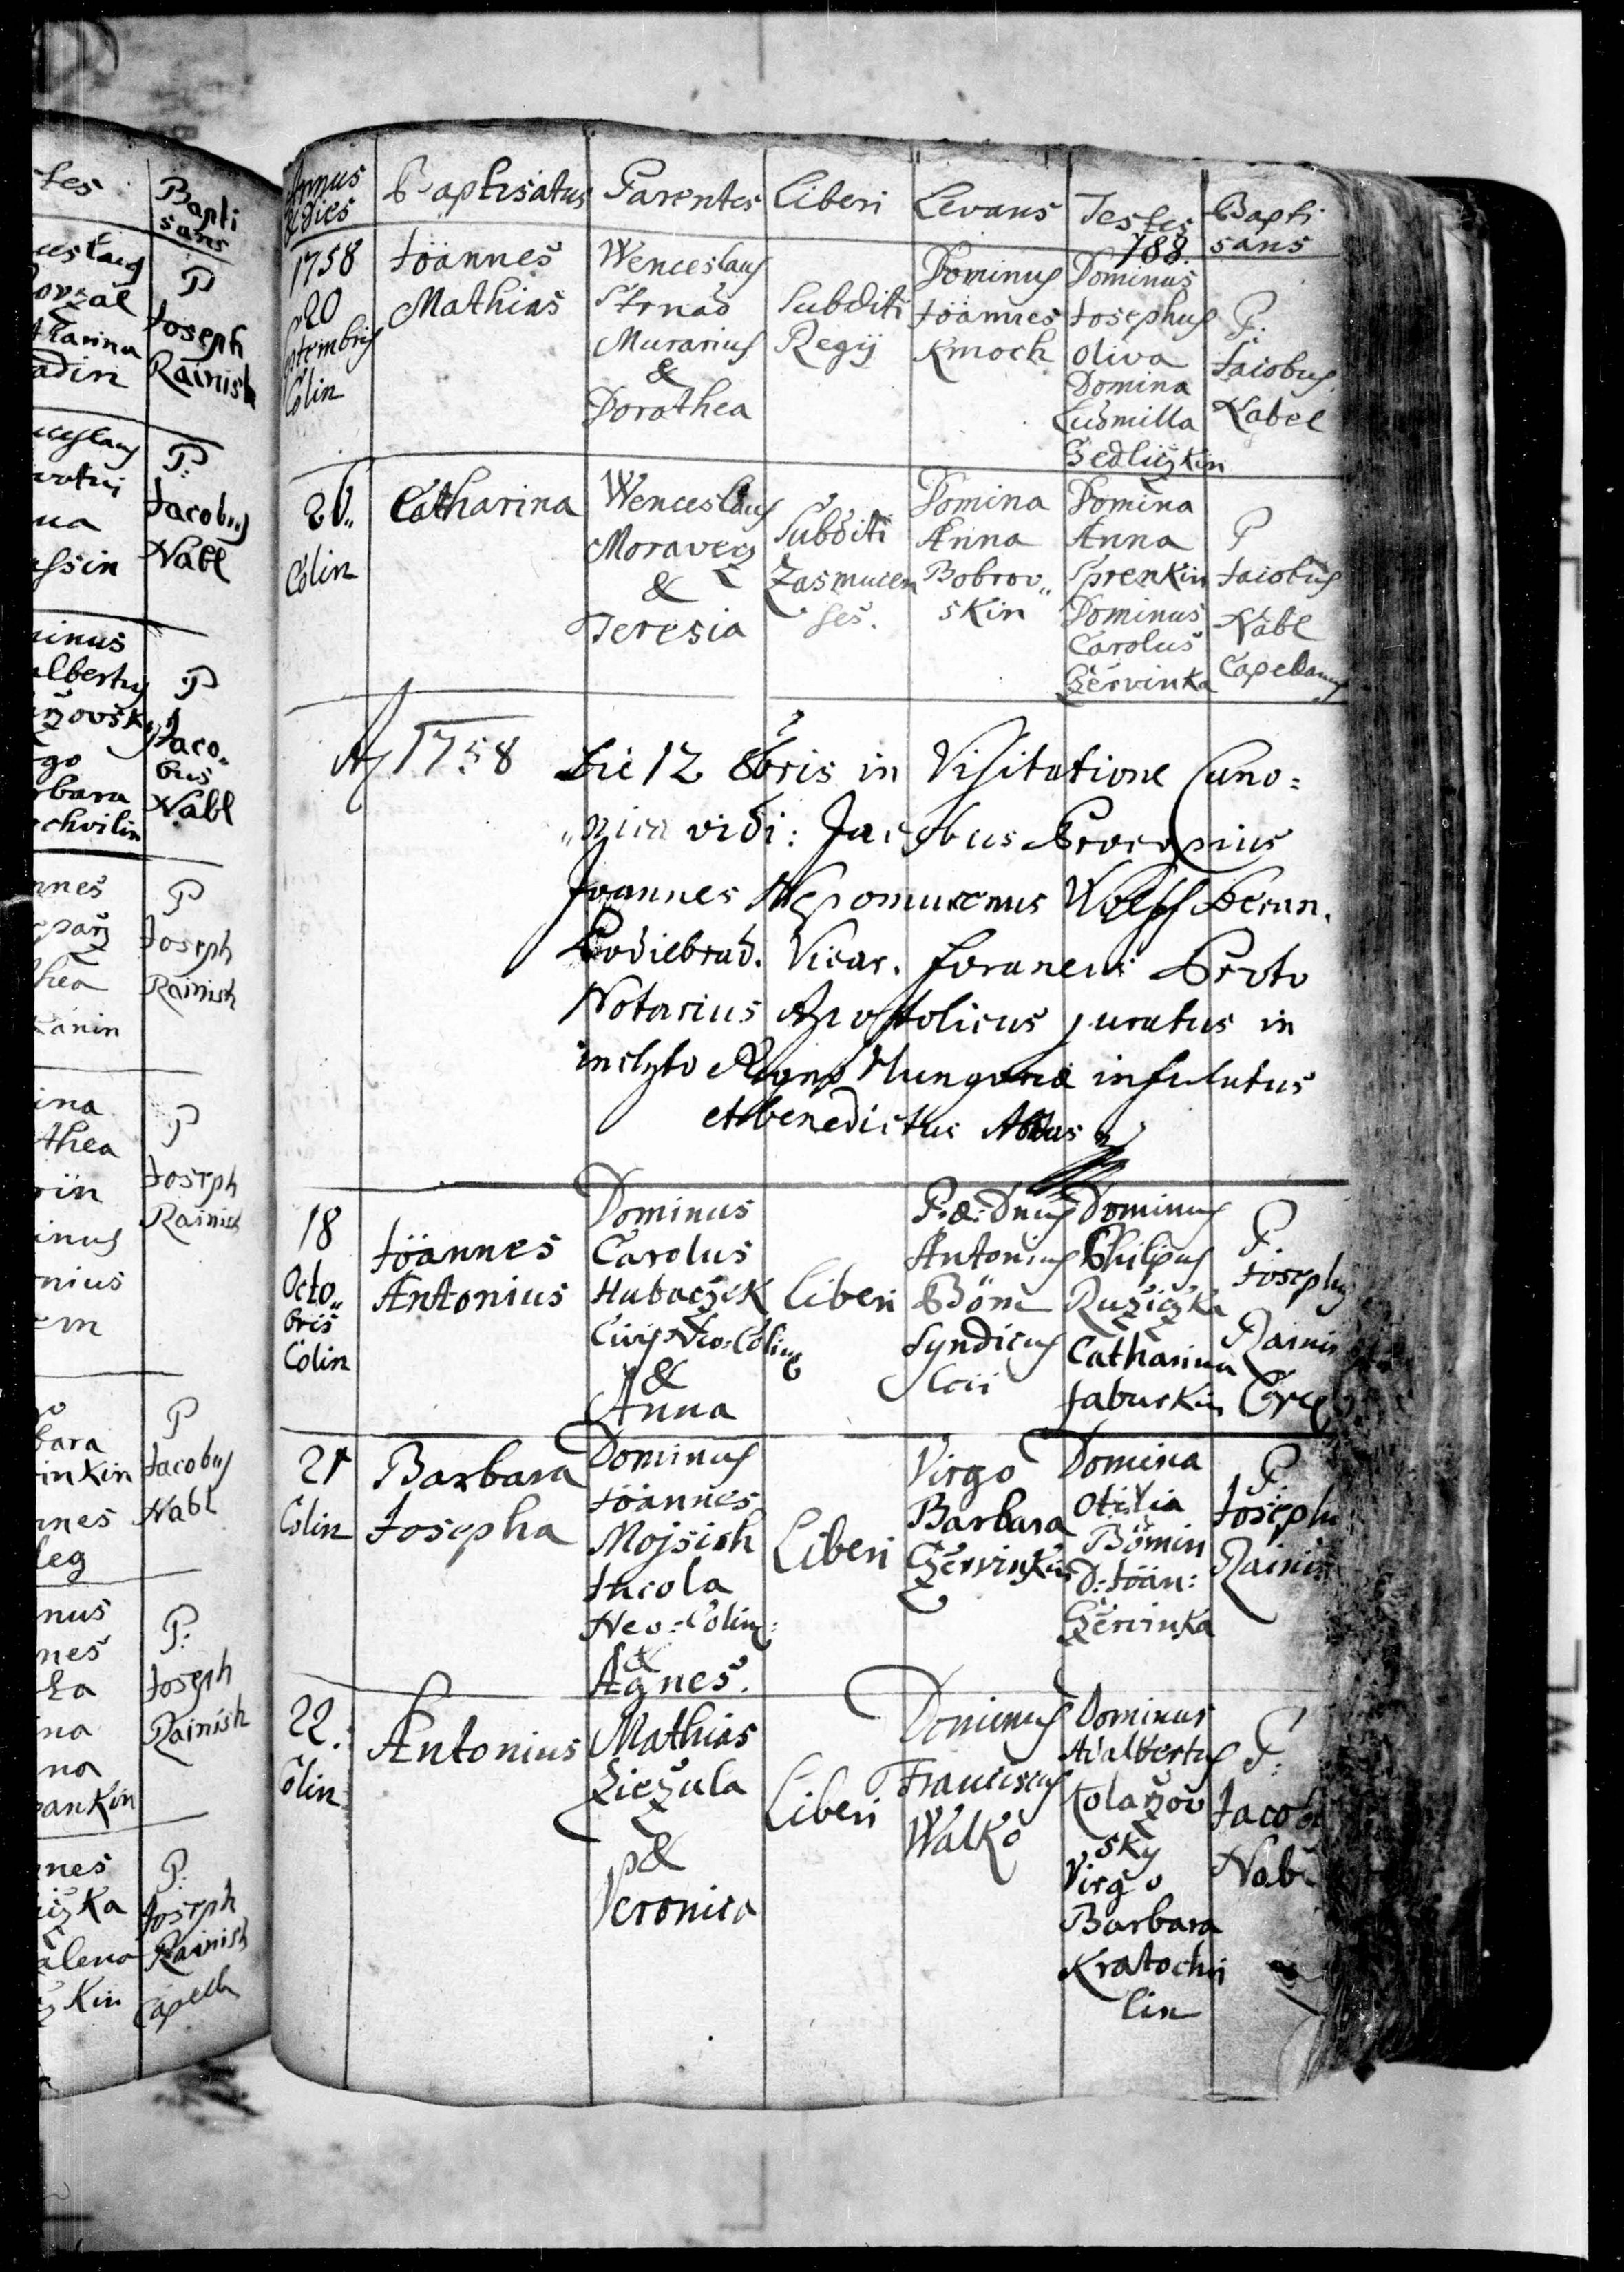 tes
Bapti
sans
P
Joseph
Rainish
P:
Jacobus
Nabl
P
Jaco„
bus
Nabl
P
Joseph
Rainish
P
Joseph
Rainish
P
Jacobus
Nabl
P:
Joseph
Rainish
P:
Joseph
Rainish
Capell
Annus
& Dies
Baptisatus
Parentes
Liberi
Levans
Testes
188.
Bapti
sans
1758
20
ptembris
Colin
Joannes
Mathias
Wenceslaus
Strnad
Murarius
&
Dorothea
Subditi
Regij
Dominus
Joannes
Kmoch
Dominus
Josephus
Oliva
Domina
Ludmilla
Sedliczkin
P:
Jacobus
Nabel
26„
Colin
Catharina
Wenceslaus
Moravecz
&
Teresia
Subditi
Zasmucen
ses.
Domina
Anna
Bobrov„
skin
Domina
Anna
Sprenkin
Dominus
Carolus
Czervinka
P
Jacobus
Nabl
Capellanus
Aõ 1758
Die 12 8bris in Visitatione Cano=
„nica vidi: Jacobus Procopius
Joannes Nepomucenus Wolff Decan.
Podiebrad. Vicar. foraneus Proto
Notarius Apostolicus juratus in
inclyto Regno Hungariæ infulatus
et benedictus Abbas
18
Octo„
bris
Colin
Joannes
Antonius
Dominus
Carolus
Hubaczek
Civis Neo-Colin
&
Anna
Liberi
P: &: Dnus
Antonius
Böm
Syndicus
Loci
Dominus
Philipus
Ruziczka
Catharina
Jaburkin
P.
Josephus
Rainis
21
Colin
Barbara
Josepha
Dominus
Joannes
Mojsich
Incola
Neo=Colin:
&
Agnes.
Liberi
Virgo
Barbara
Czervinkin
Domina
Otilia
Bömin
D: Joan:
Czervinka
P.
Josephu
Rainis
22.
Colin
Antonius
Mathias
Ziezula
&
Veronica
Liberi
Dominus
Franciscus
Walko
Dominus
Adalbertus
Kolarzov
sky
Virgo
Barbara
Kratochvi
lin
P:
Jacob
Nabl